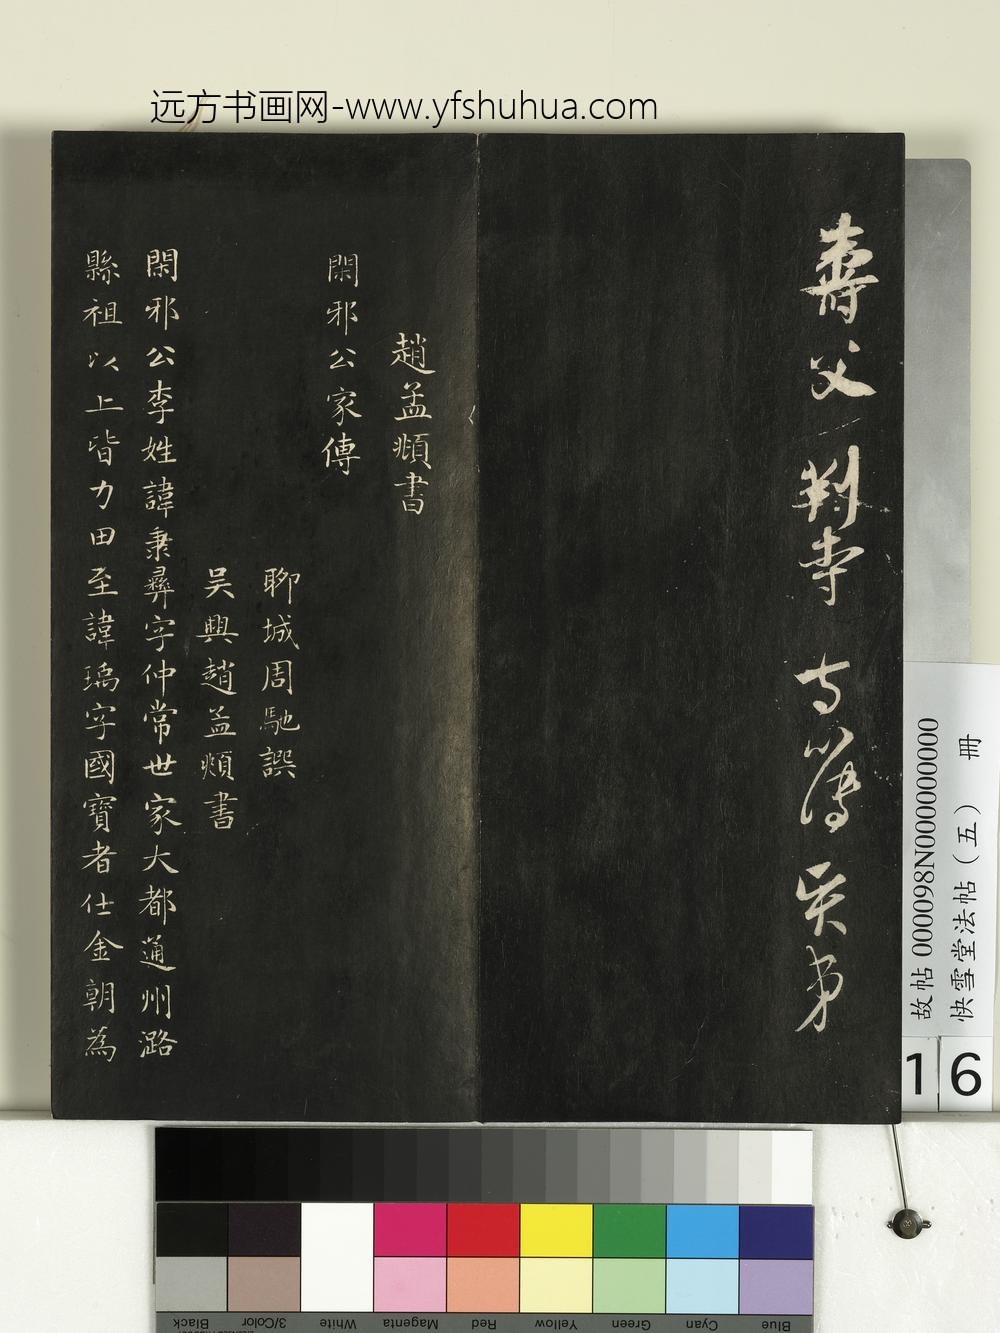 远方书画网-www.yfshuhua.com
壽父判寺
趙孟頫書
閑邪公家傳
聊城周馳譔
吴興趙孟頫書
閑邪公李姓諱秉彝字仲常世家大都通州潞
縣祖以上皆力田至諱瑀字國寶者仕金朝為
故帖 000098N000000000
快雪堂法帖（五） 冊
16
Black
3/Color
White
Magenta
Red
Yellow
Green
Cyan
Blue